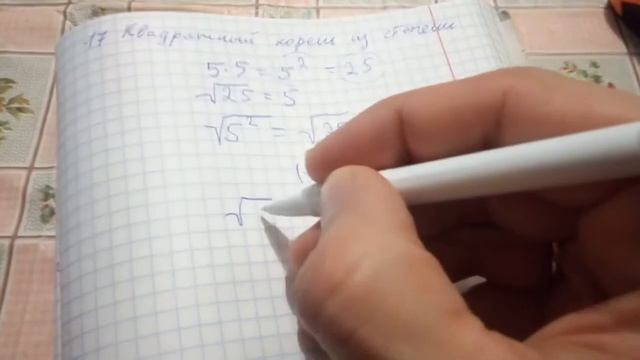 17 Квадратный корень из степени
5·5 = 5² = 25
√25 = 5
√5² = √25
√